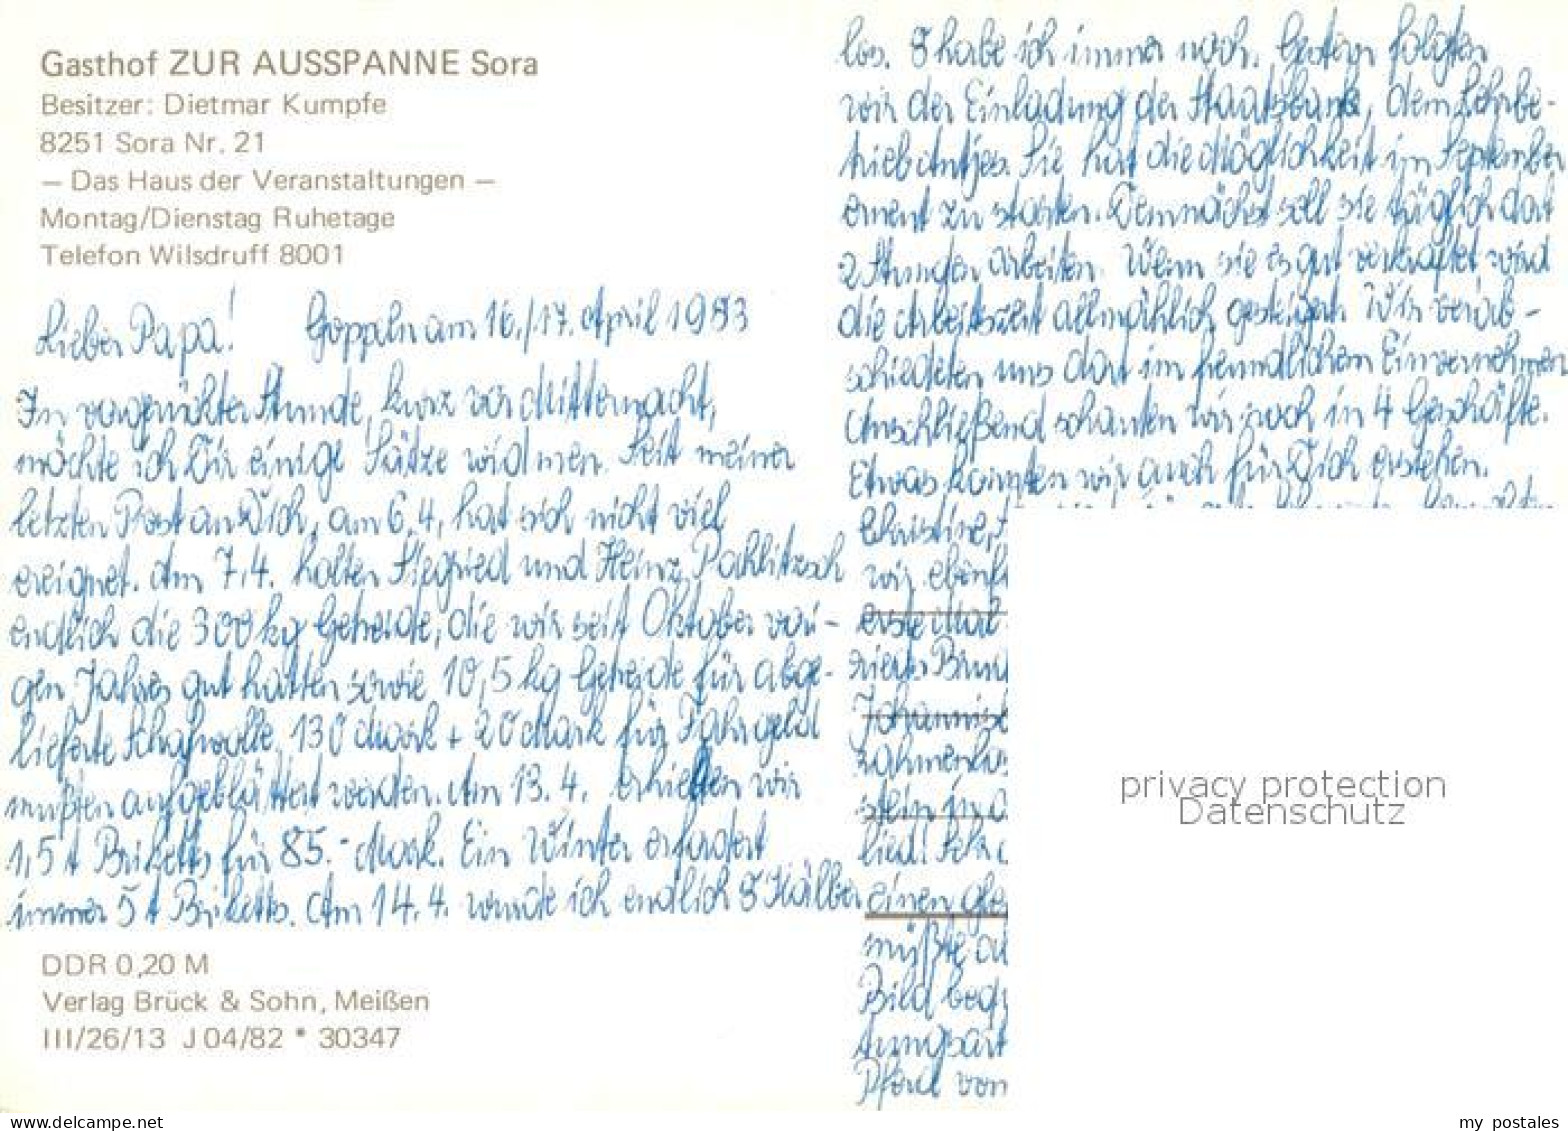 Gasthof ZUR AUSSPANNE Sora
Besitzer: Dietmar Kumpfe
8251 Sora Nr. 21
— Das Haus der Veranstaltungen —
Montag/Dienstag Ruhetage
Telefon Wilsdruff 8001
Lieber Papa! Goppeln am 16./17. April 1983
In vorgerückter Stunde, kurz vor Mitternacht,
möchte ich Dir einige Sätze widmen. Seit meiner
letzten Post an Dich, am 6.4., hat sich nicht viel
ereignet. Am 7.4. holten Siegfried und Heinz Pachlitzsch
endlich die 300 kg Getreide, die wir seit Oktober vori-
gen Jahres gut hatten sowie 10,5 kg Getreide für abge-
lieferte Schafwolle. 130 Mark + 20 Mark für Fahrgeld
mußten aufgeblättert werden. Am 13.4. erhielten wir
1,5 t Briketts für 85.- Mark. Ein Winter erfordert
immer 5 t Briketts. Am 14.4. wurde ich endlich 8 Kälber
DDR 0,20 M
Verlag Brück & Sohn, Meißen
III/26/13 J 04/82 * 30347
los. 8 habe ich immer noch. Gestern folgten
wir der Einladung der Staatsbank, dem Lehrbe-
trieb Antjes. Sie hat die Möglichkeit im September
erneut zu starten. Demnächst soll sie täglich dort
2 Stunden arbeiten. Wenn sie es gut verkraftet wird
die Arbeitszeit allmählich gesteigert. Wir verab-
schiedeten uns dort im freundlichem Einvernehmen
Anschließend schauten wir noch in 4 Geschäfte.
Etwas konnten wir auch für Dich erstehen.
Christine,
wir ebenf
erste Mal
Johannis
stein in
lied! Sehr
einen
müßte
Bild
Pferd von
privacy protection
Datenschutz
delcampe.net
my_postales